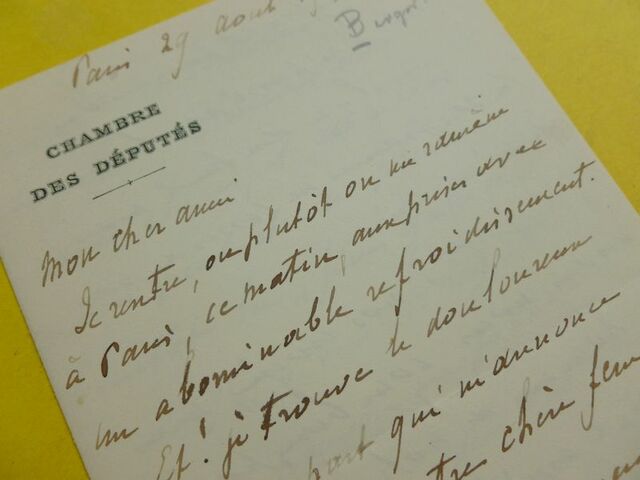 Paris 29 août
CHAMBRE
DES DÉPUTÉS
Mon cher ami
Je rentre, ou plutôt on me ramène
à Paris, ce matin, aux prises avec
un abominable refroidissement.
Et! je trouve le douloureux
part qui m'annonce
chère